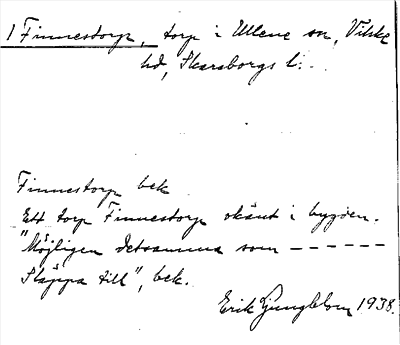 1 Finnestorp, torp i Ullene sn, Vilske
hd, Skaraborgs l.
Finnestorp bek
Ett torp Finnestorp okänt i bygden.
"Möjligen detsamma som ------
Släppa till", bek.
Erik Ljungblom 1938.